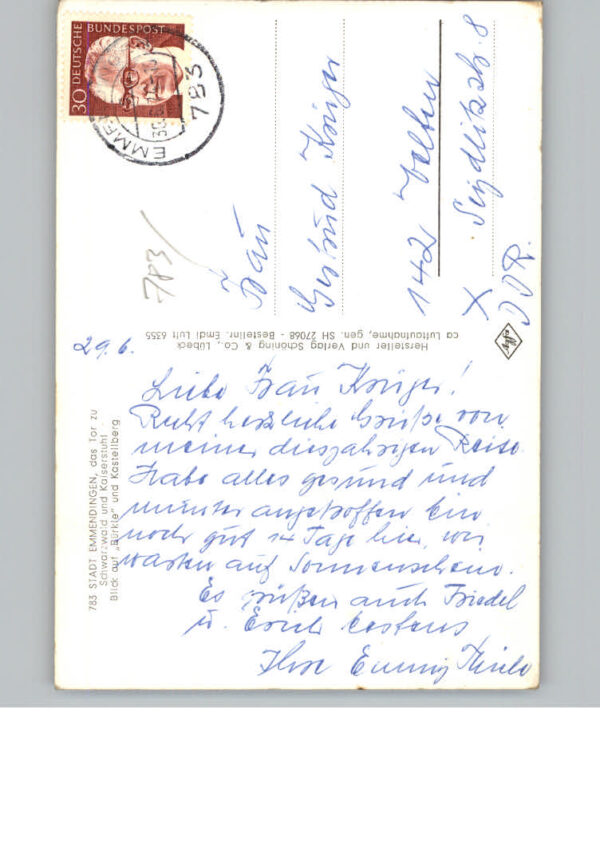 29.6.
Liebe Frau Krüger!
Recht herzliche Grüße von
meiner diesjährigen Reise.
Habe alles gesund und
munter angetroffen. Bin
noch gut 14 Tage hier, wir
warten auf Sonnenschein.
Es grüßen auch Friedel
u. Erich bestens
Ihre Emmy
783 STADT EMMENDINGEN, das Tor zu
Schwarzwald und Kaiserstuhl
Blick auf „Bürkle" und Kastellberg
Hersteller und Verlag Schöning & Co., Lübeck
ca Luftaufnahme, gen. SH 27068 - Bestellnr. Emdi Luft 6355
783
Frau
Gertrud Krüger
142 Velten
Seydlitzstr. 8
X
DDR.
30 DEUTSCHE BUNDESPOST
783